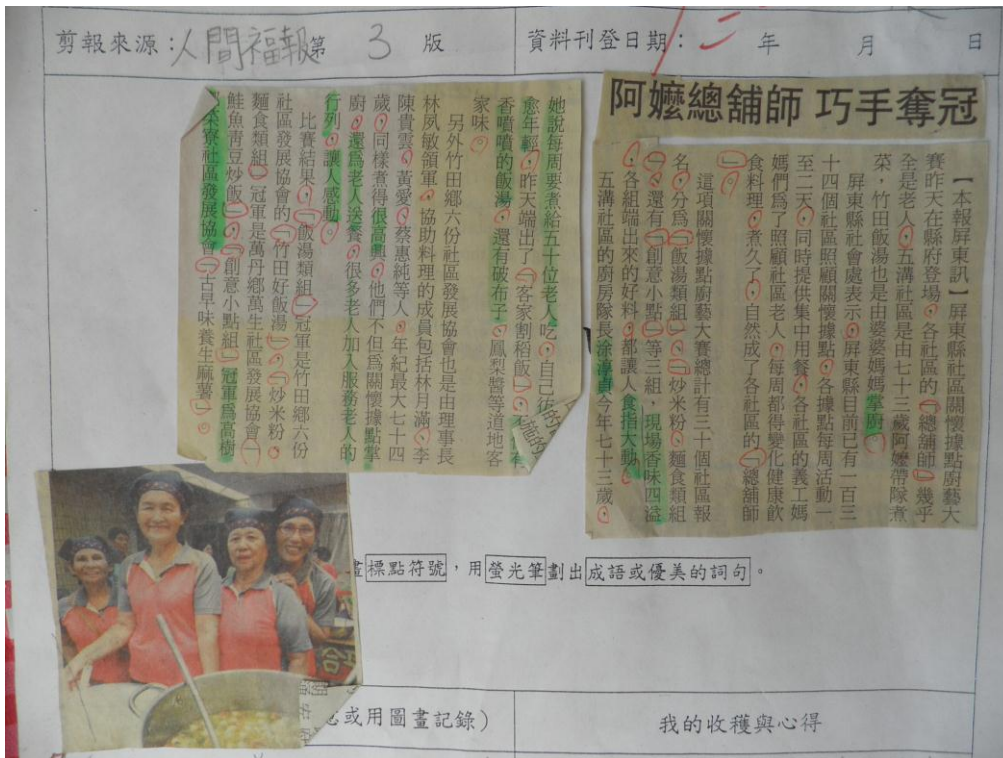 剪報來源：人間福報第 3 版
資料刊登日期： 年 月 日
阿嬤總舖師 巧手奪冠
【本報屏東訊】屏東縣社區關懷據點廚藝大
賽昨天在縣府登場，各社區的「總舖師」幾乎
全是老人，五溝社區是由七十三歲阿嬤帶隊煮
菜，竹田飯湯也是由婆婆媽媽掌廚。
屏東縣社會處表示，屏東縣目前已有一百三
十四個社區照顧關懷據點，各據點每周活動一
至二天，同時提供集中用餐，各社區的義工媽
媽們為了照顧社區老人，每周都得變化健康飲
食料理，煮久了，自然成了各社區的「總舖師
」。
這項關懷據點廚藝大賽總計有三十個社區報
名，分為「飯湯類組」、「炒米粉、麵食類組
」、還有「創意小點」等三組，現場香味四溢
，各組端出來的好料，都讓人食指大動。
五溝社區的廚房隊長今年七十三歲，
她說每周要煮給五十位老人吃，自己
愈年輕，昨天端出了「客家割稻飯」，有
香噴噴的飯湯，還有破布子、鳳梨醬等道地客
家味。
另外竹田鄉六份社區發展協會也是由理事長
林夙敏領軍，協助料理的成員包括林月滿、李
陳貴雲、黃愛、蔡惠純等人，年紀最大七十四
歲，同樣煮得很高興，他們不但為關懷據點掌
廚，還為老人送餐，很多老人加入服務老人的
行列，讓人感動。
比賽結果，「飯湯類組」冠軍是竹田鄉六份
社區發展協會的「竹田好飯湯」，「炒米粉、
麵食類組」冠軍是萬丹鄉萬生社區發展協會「
鮭魚青豆炒飯」，「創意小點組」冠軍為高樹
菜寮社區發展協會「古早味養生麻薯」。
標點符號，用螢光筆劃出成語或優美的詞句。
或用圖畫記錄)
我的收穫與心得